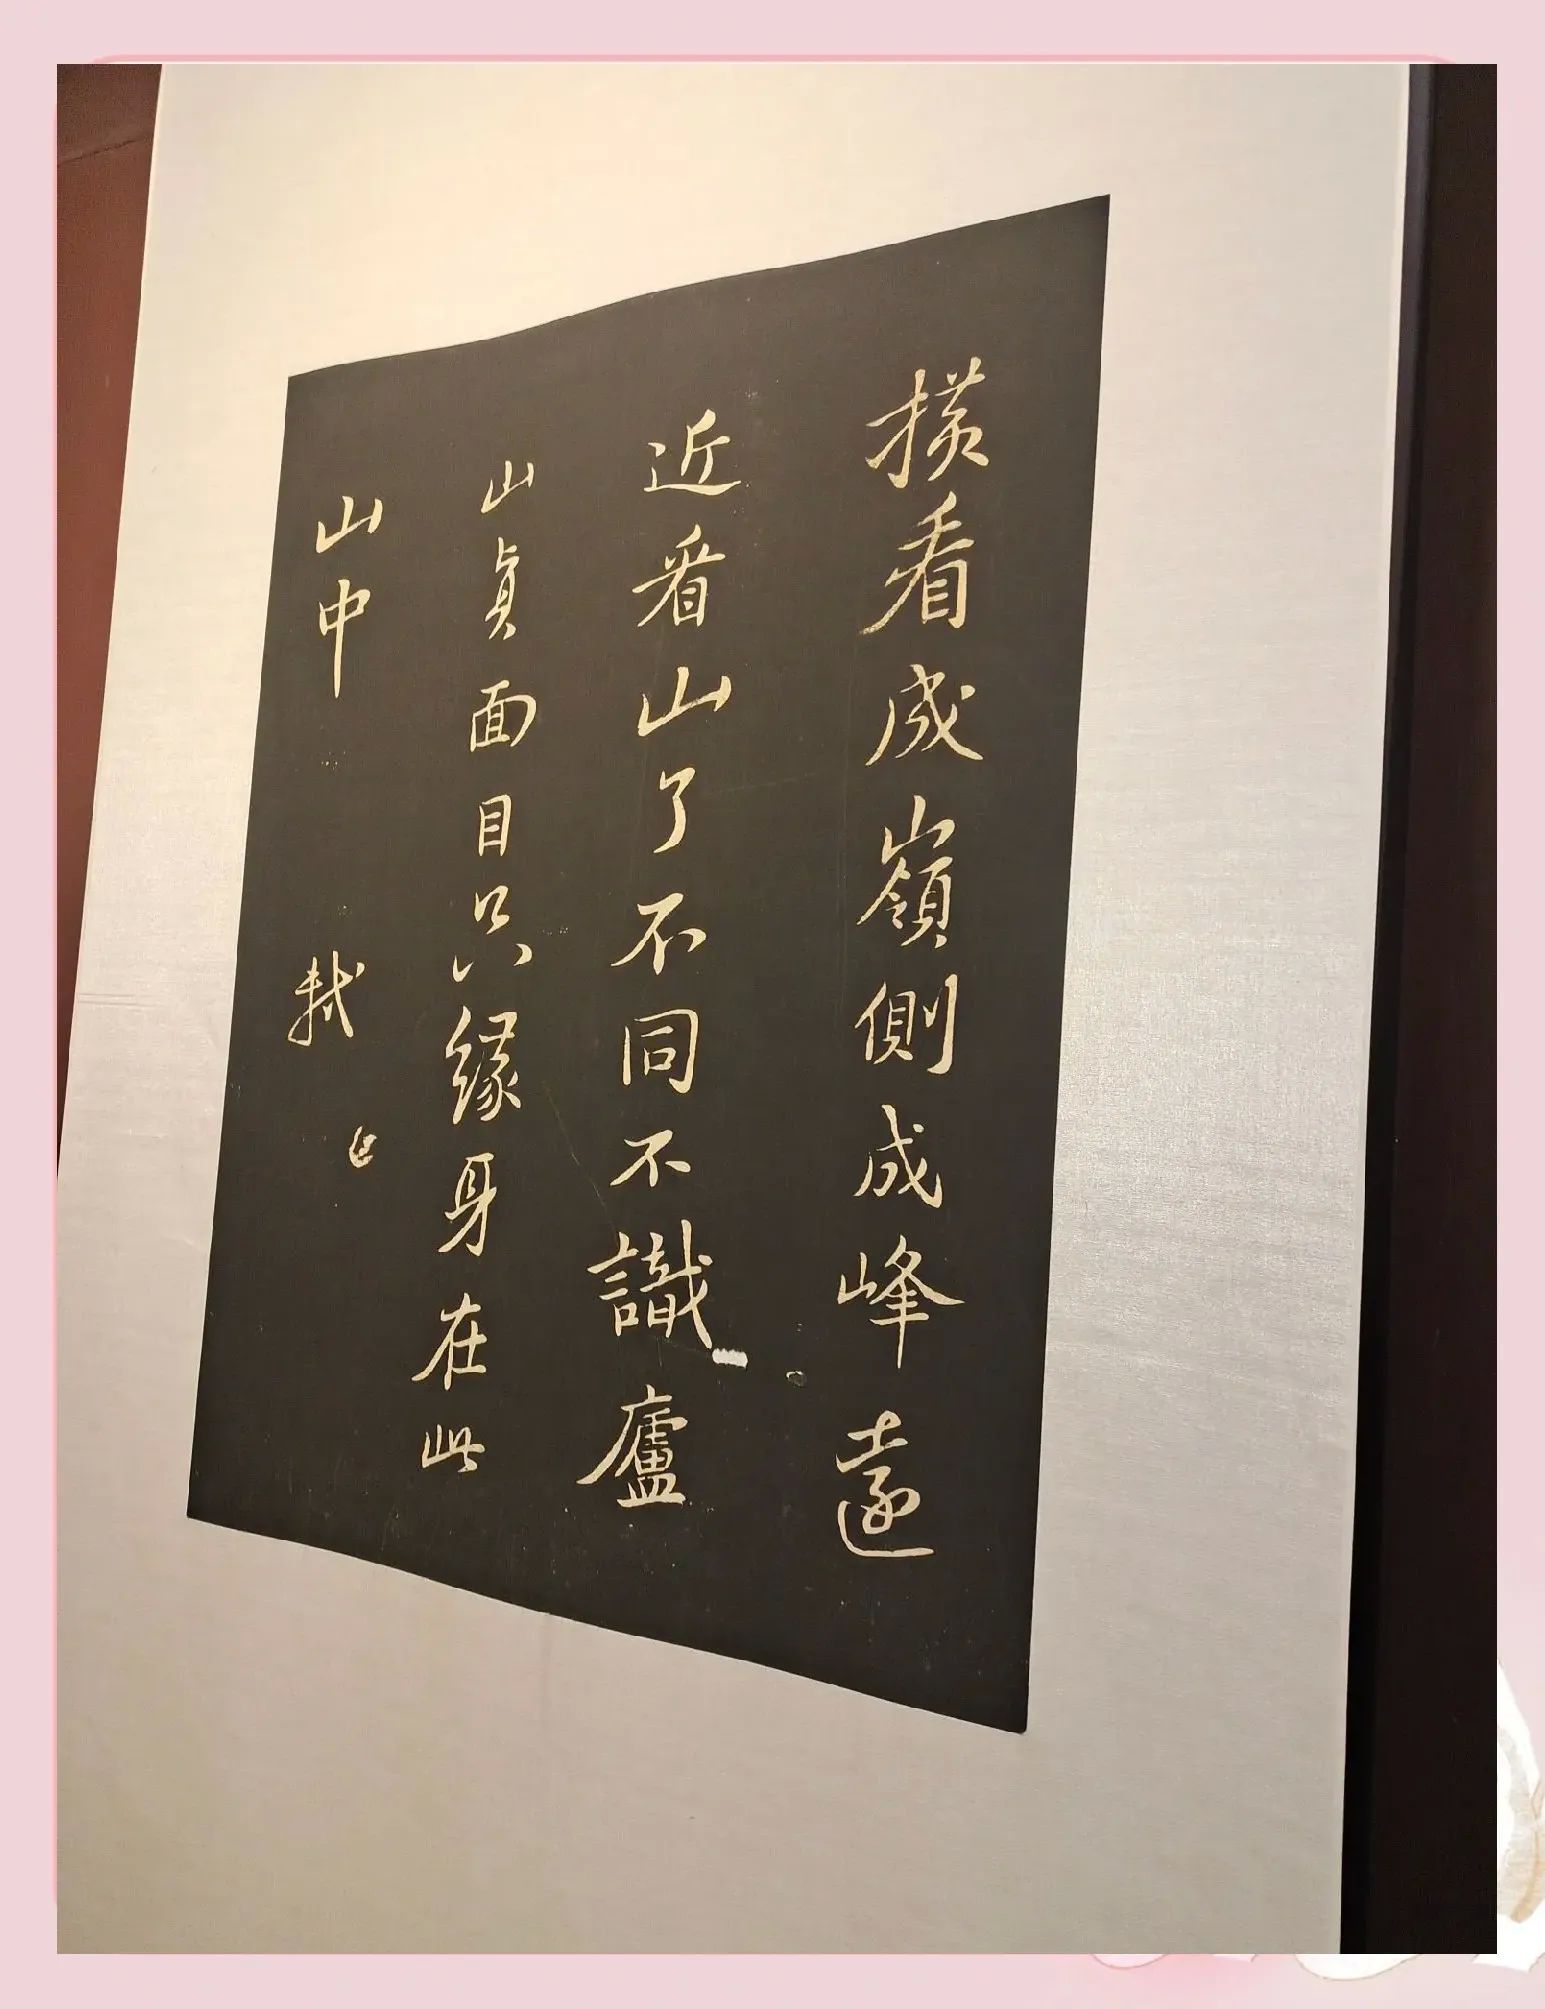 橫看成嶺側成峰遠
近看山了不同不識廬
山真面目只緣身在此
山中
軾